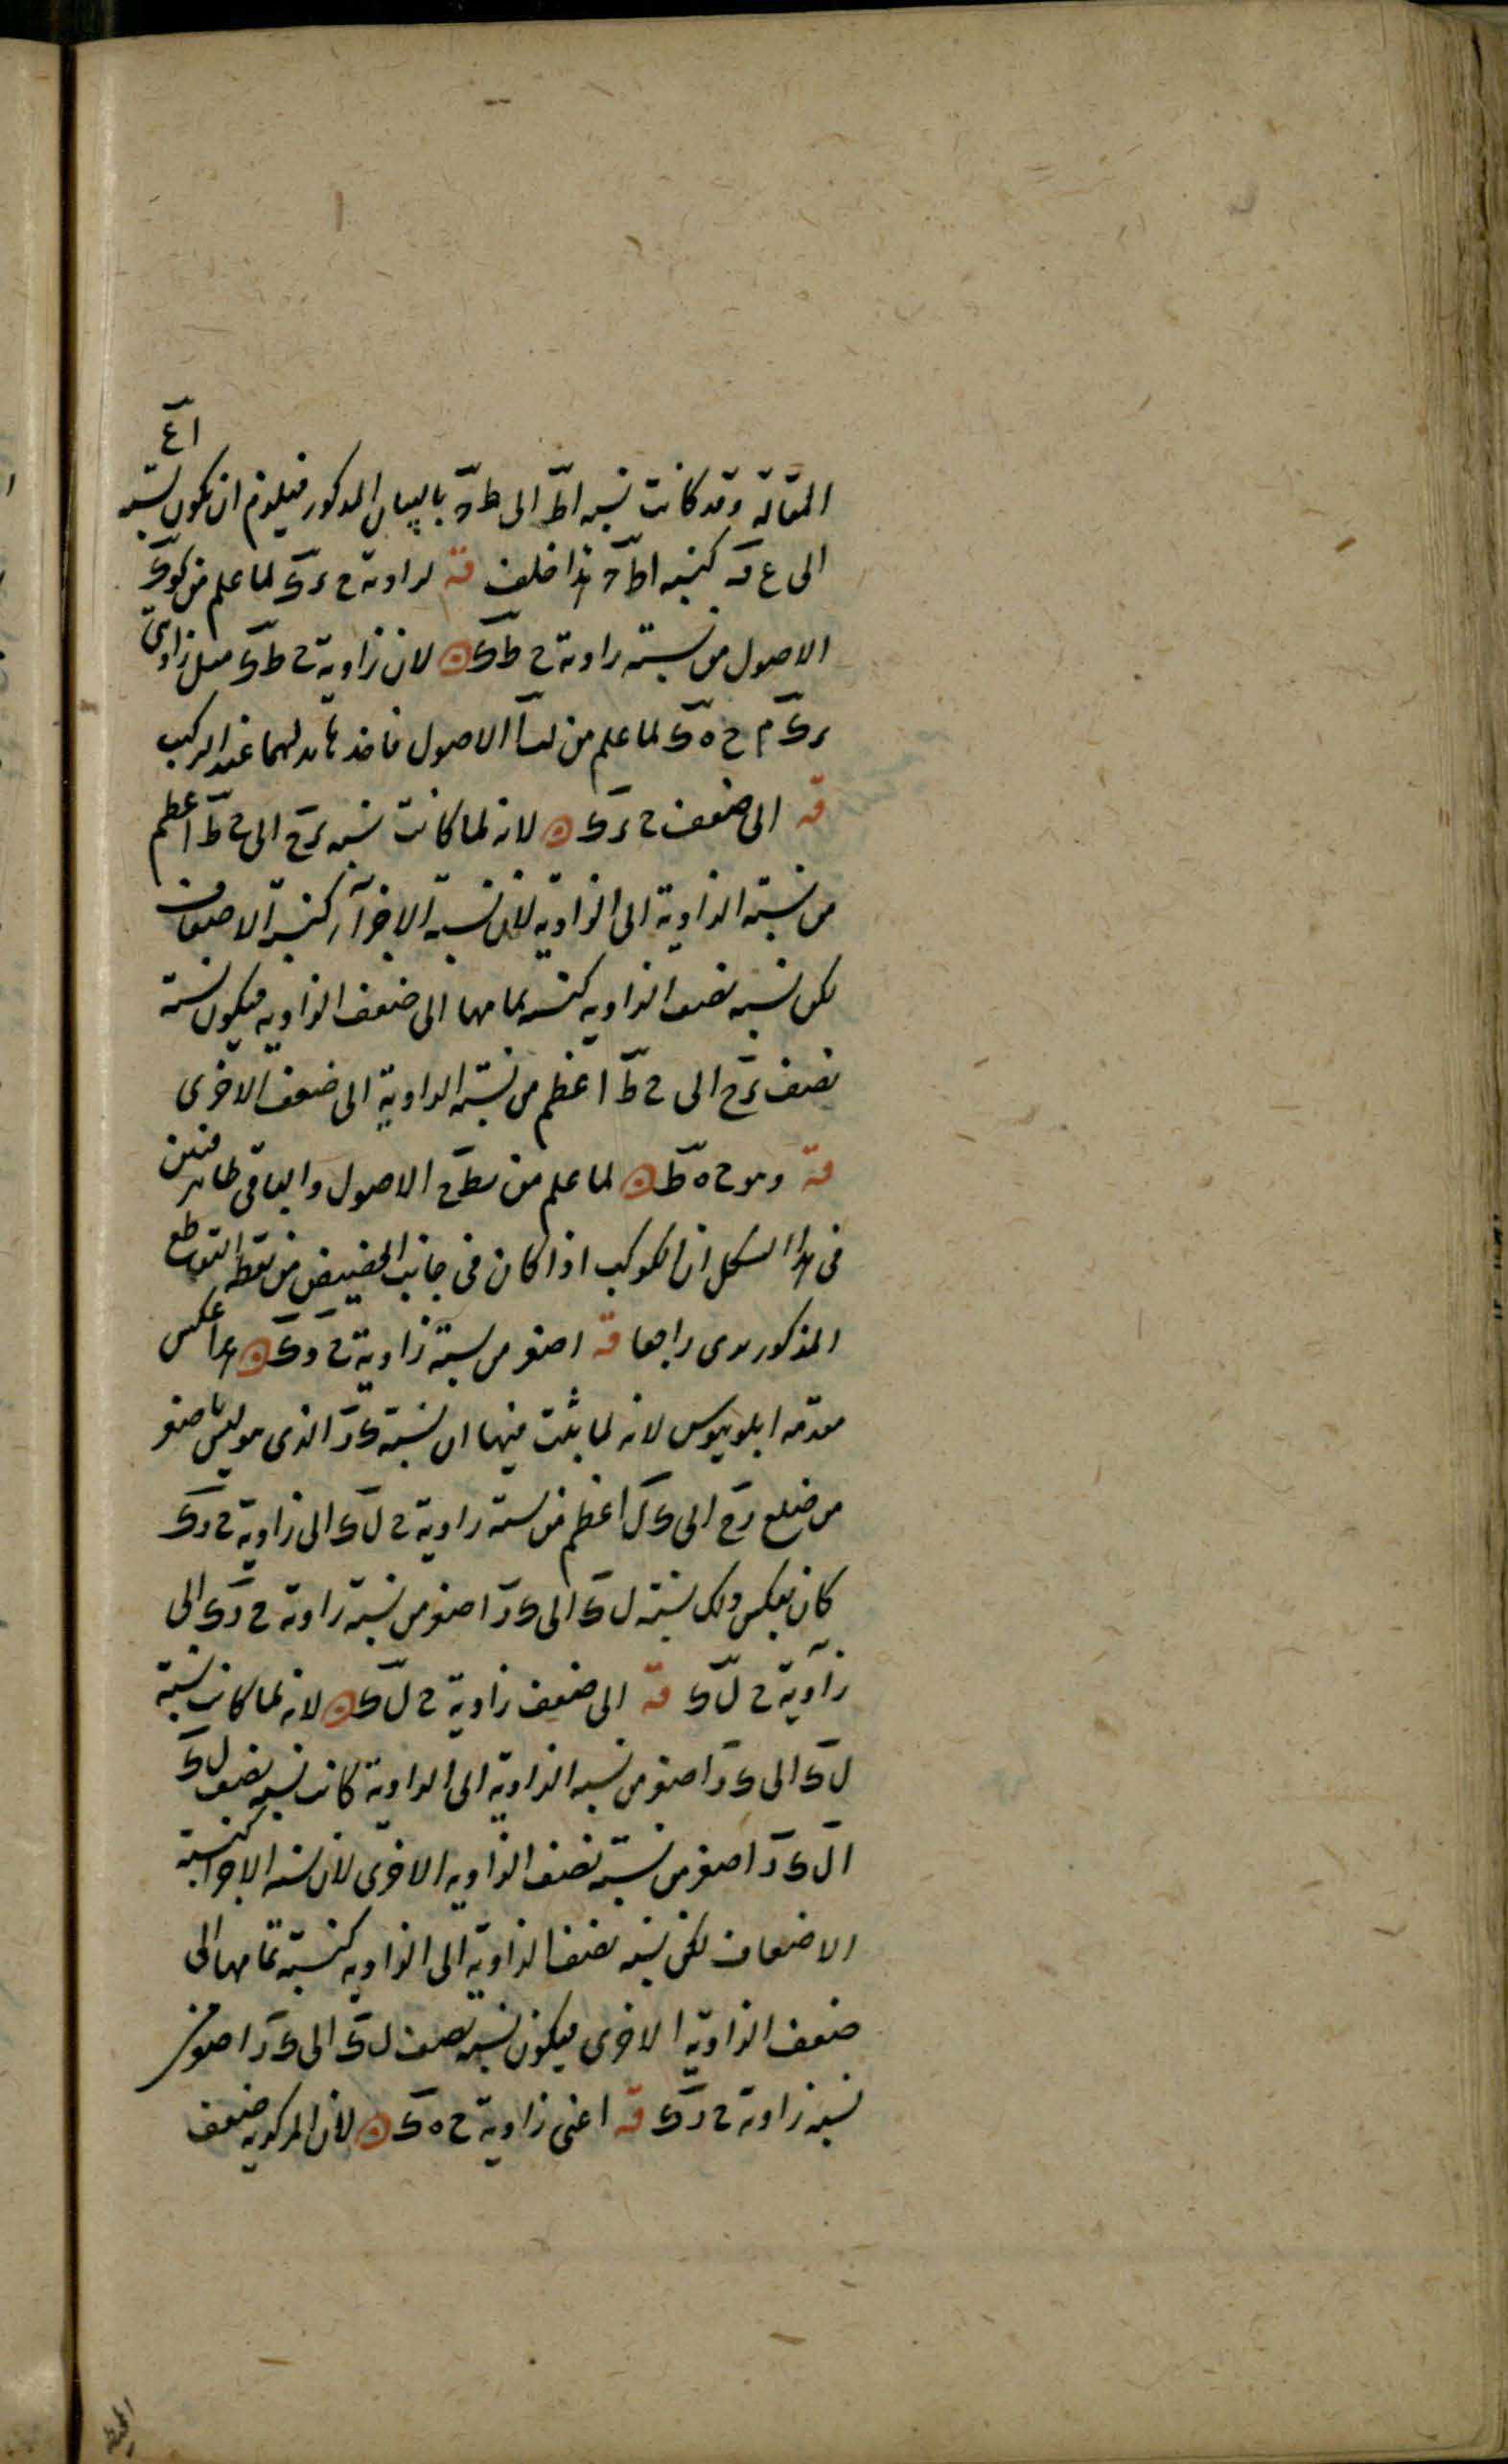 اع
المقالة وقد كانت نسبه اط الى ط د بالبيان المذكور فيلزم ان يكون نسبة
الى ع ف كنسبه اط د هذا خلف قه لزاوية ح ر ك لما علم من كو ك
الاصول من نسبة زاوية ح ط ك لان زاوية ح ط ك مثل زاويتى
ر ك م ح ه ك لما علم من لب ا الاصول فاخذ بدلهما عند التركيب
قه الى ضعف ح ر ك لانه لما كانت نسبه ر ح الى ح ط اعظم
من نسبة الزاوية الى الزاويه لان نسبة الاجزآء كنسبة الاضعاف
لكن نسبه نصف الزاويه كنسبه تمامها الى ضعف الزاويه فيكون نسبة
نصف ر ح الى ح ط اعظم من نسبة الزاوية الى ضعف الاخرى
قه وهو ح ه ط لما علم من يط ح الاصول والباقى ظاهر فتبين
فى هذا الشكل ان الكوكب اذا كان فى جانب الحضيض من نقطة التقاطع
المذكور يرى راجعا قه اصغر من نسبة زاوية ح د ك هذا عكس
مقدمه ابلونيوس لانه لما ثبت فيها ان نسبة ك د الذى هو ليس باصغر
من ضلع د ح الى ك ل اعظم من نسبة زاوية ح ل ك الى زاوية ح د ك
كان بعكس ذلك نسبة ل ك الى ك د اصغر من نسبة زاوية ح د ك الى
زاوية ح ل ك قه الى ضعف زاوية ح ل ك لانه لما كانت نسبة
ل ك الى ك د اصغر من نسبه الزاوية الى الزاوية كانت نسبه نصف ل ك
الى ك د اصغر من نسبة نصف الزاويه الاخرى لان نسبه الاجزا كنسبة
الاضعاف لكن نسبه نصف الزاوية الى الزاويه كنسبة تمامها الى
ضعف الزاوية الاخرى فيكون نسبه نصف ل ك الى ك د اصغر من
نسبه زاوية ح د ك قه اعنى زاوية ح ه ك لان المركزيه ضعف
المحيطيه